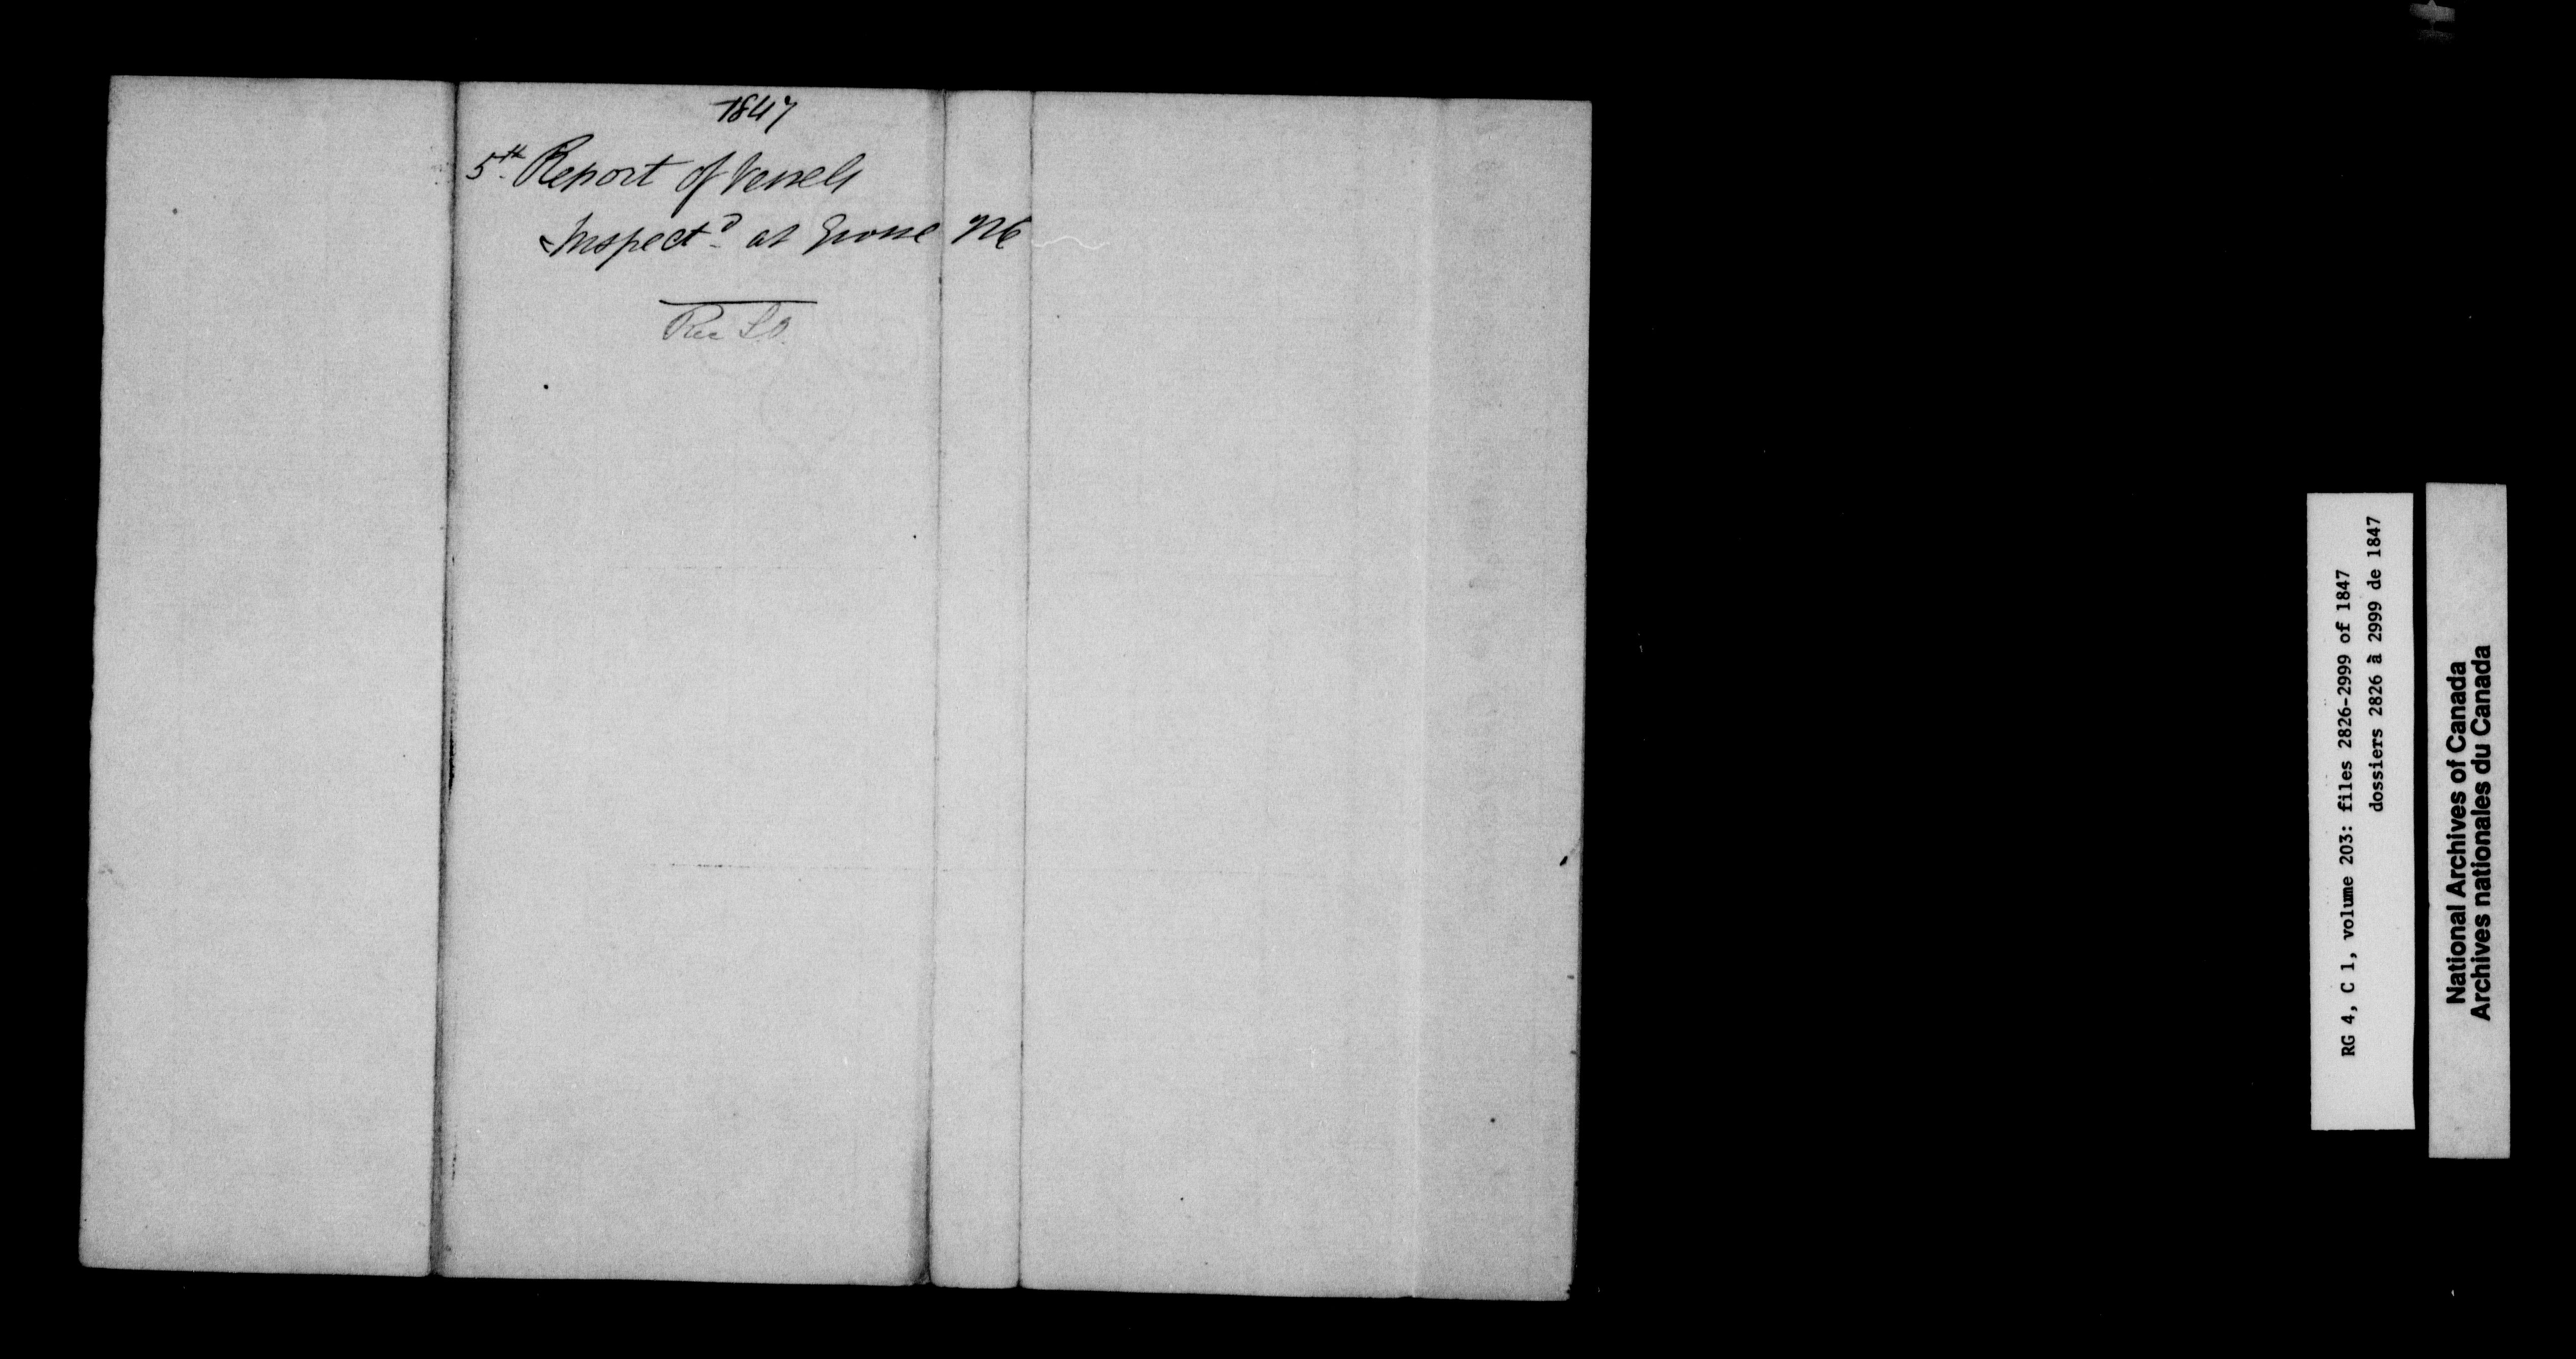 1847
5th Report of Vessels
Inspectd at Grosse
RG 4, C 1, volume 203: files 2826-2999 of 1847
dossiers 2826 à 2999 de 1847
National Archives of Canada
Archives nationales du Canada